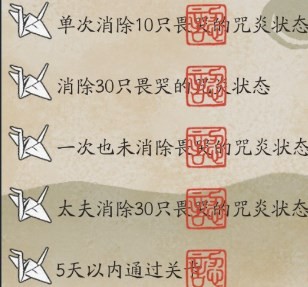 单次消除10只畏哭的咒炎状态
消除30只畏哭的咒炎状态
一次也未消除畏哭的咒炎状态
太夫消除30只畏哭的咒炎状态
5天以内通过关卡